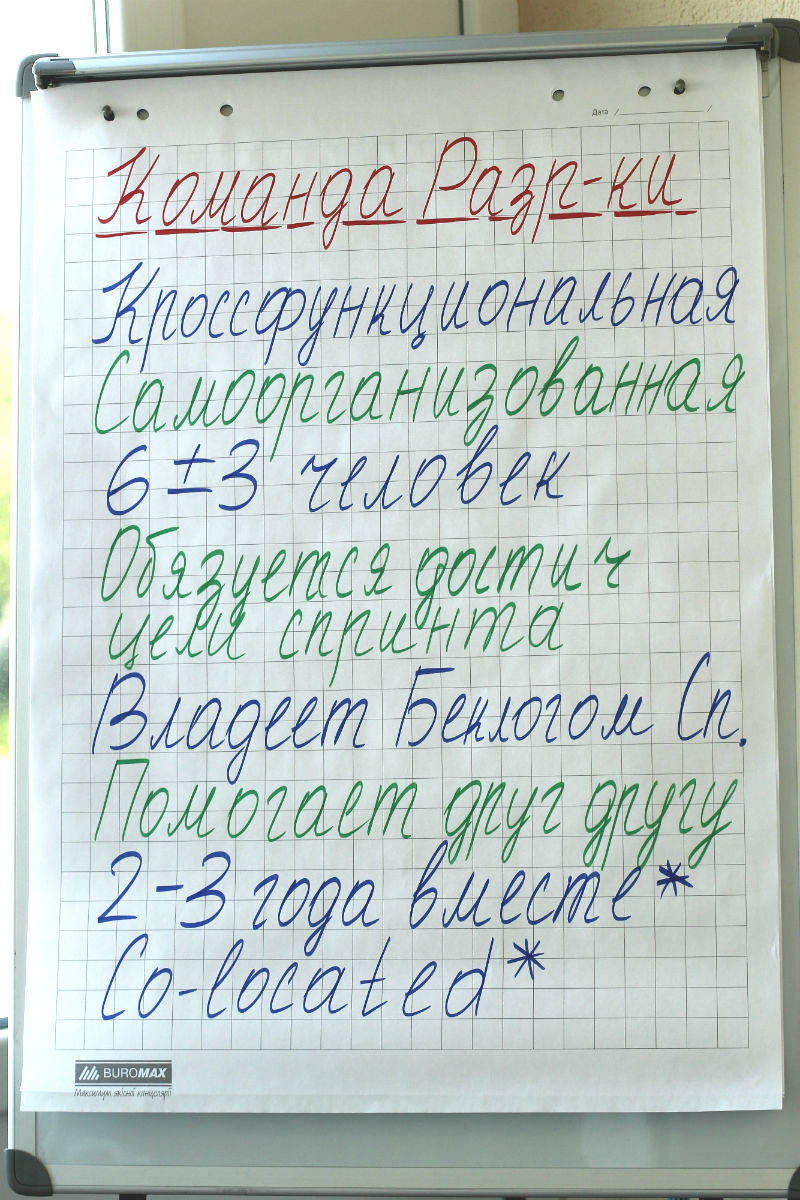 Дата / /
Команда Разр-ки
Кроссфункциональная
Самоорганизованная
6 ± 3 человек
Обязуется достич
цели спринта
Владеет Беклогом Сп.
Помогает друг другу
2-3 года вместе*
Co-located*
BUROMAX
Максимум якісної канцелярії